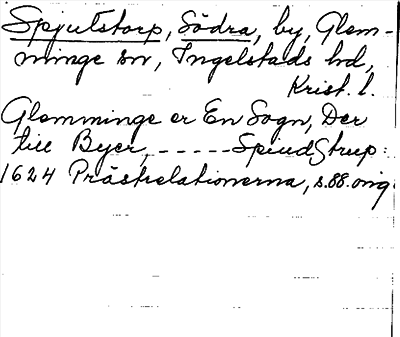 Spjutstorp, Södra, by, Glem-
minge sn, Ingelstads hd,
Krist. l.
Glemminge er En Sogn, Der
till Byer, ----- Spiudstrup:
1624 Prästrelationerna, s.88. orig